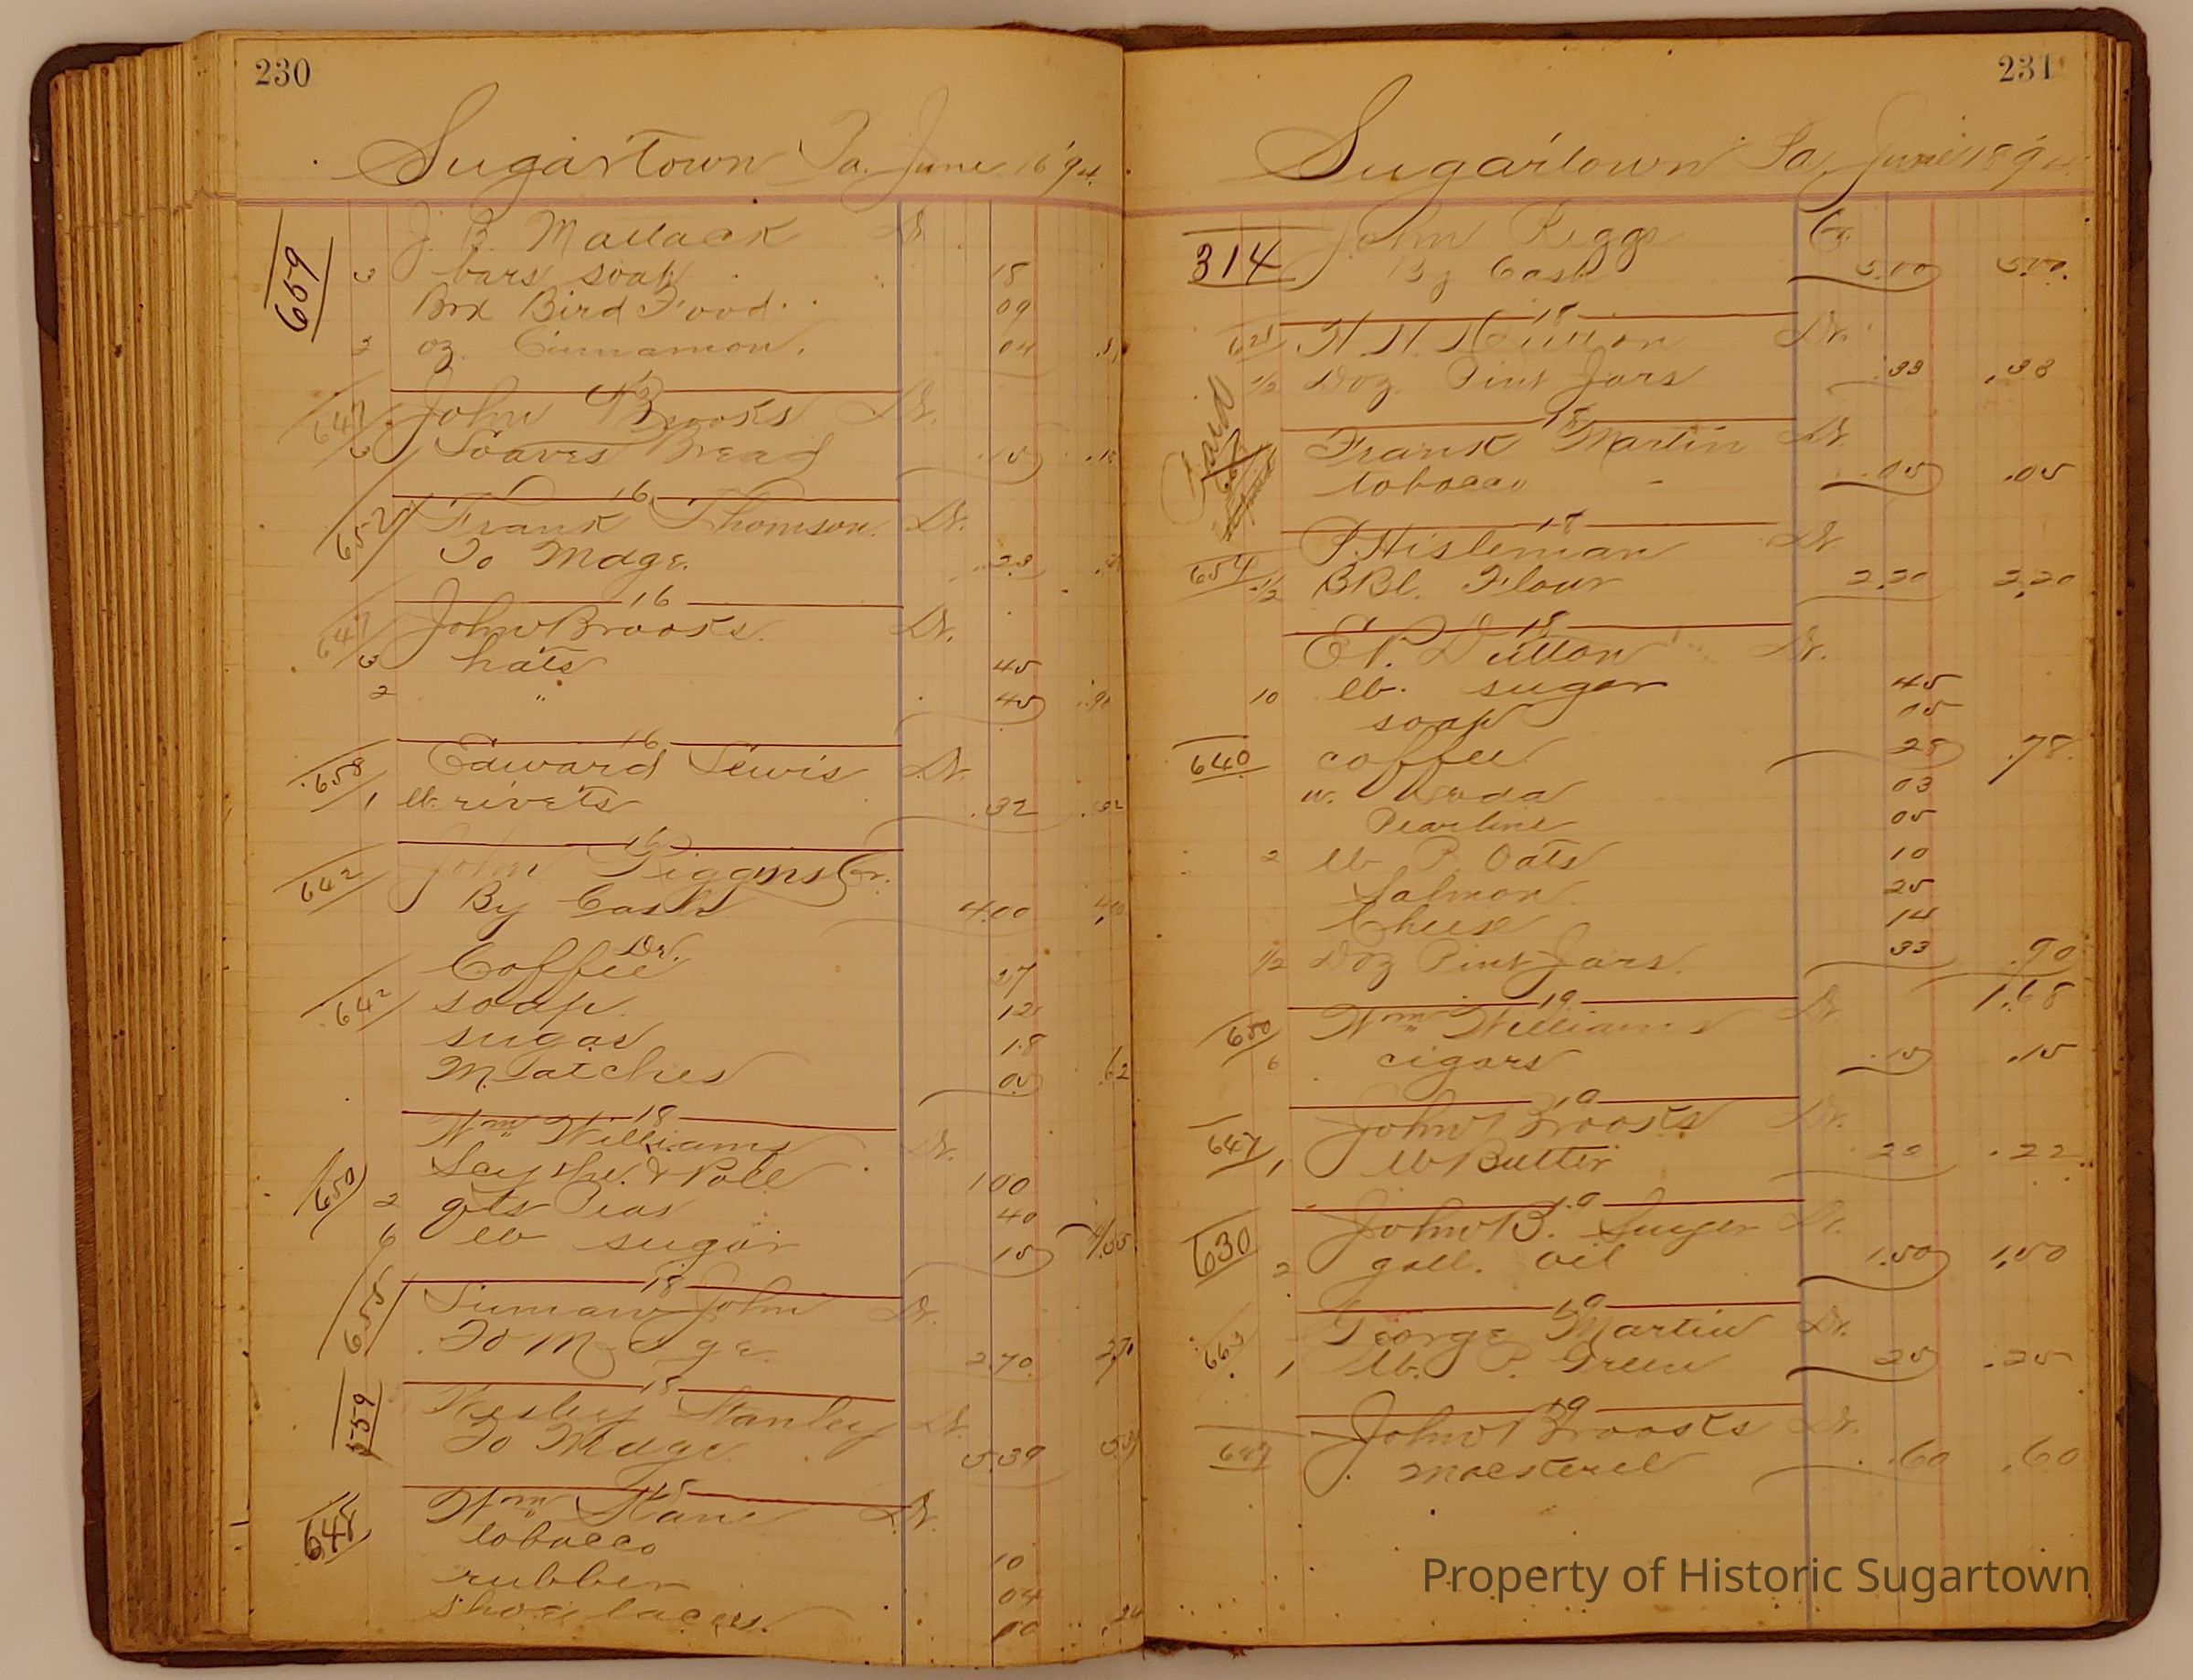 230
Sugartown Pa. June 16 '94
659 J. B. Matlack Dr.
3 bars soap 18
Box Bird Food 09
2 oz. Cinnamon. 04
16
647 John Brooks Dr.
3 Loaves Bread .15
16
652 Frank Thomson. Dr.
To Mdge. .23
16
647 John Brooks. Dr.
3 hats 45
2 " 45 .90
16
658 Edward Lewis Dr.
1 lb rivets .32 .32
16
642 John Piggins Cr.
By Cash 4.00
Dr.
Coffee 27
642 soap 12
sugar 18
Matches 05 .62
18
Wm Williams Dr.
Scythe & Pole 1 00
650 2 qts Peas 40
6 lb sugar 15 1.55
18
655 John Dr.
To Mdge. 2.70 2.70
18
559 Wesley Stanley Dr.
To Mdge. 5.39 5.39
18
648 Wm Dr.
tobacco 10
rubber 04
shoe laces. 10 .24
231
Sugartown Pa, June 18 94
314 John Riggs Cr.
By Cash 5.00 5.00.
18
H. H. Dr.
1/2 Doz. Pint Jars .33 .33
18
Paid Frank Martin Dr.
tobacco .05 .05
18
P. Hisleman Dr
654 1/2 BBl. Flour 2.20 2.20
18
E. P. Dutton Dr.
10 lb. sugar 45
soap 05
640 coffee 28 .78
w. soda 03
Pearline 05
2 lb P. Oats 10
Salmon 25
Cheese 14
1/2 Doz Pint Jars. 33 .90
19 1.68
650 Wm Williams Dr
6 cigars .15 .15
19
John Brooks Dr.
647 1 lb Butter 22 .22
19
630 John B. Dr.
2 gall. oil 1.50 1.50
19
663 George Martin Dr.
1 lb. P. Green 25 .25
19
John Brooks Dr.
647 mackerel .60 .60
Property of Historic Sugartown